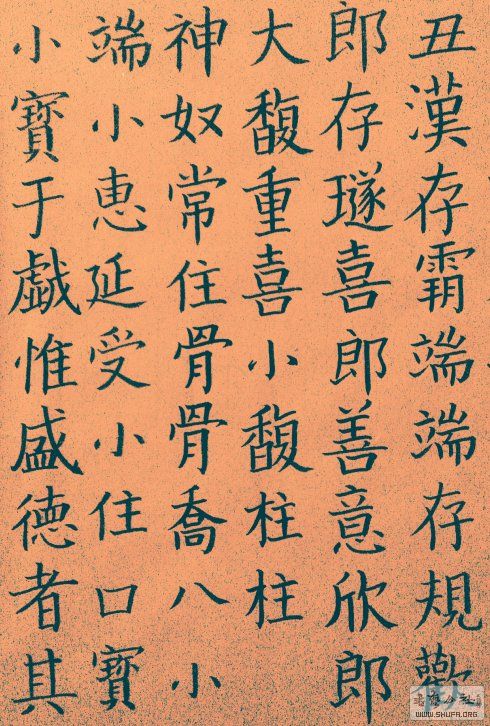 丑漢存霸端端存規歡
郎存璲喜郎善意欣郎
大馥重喜小馥柱柱
神奴常住骨骨喬八小
端小惠延受小住口寶
小寶于戱惟盛德者其
WWW.SHUFA.ORG